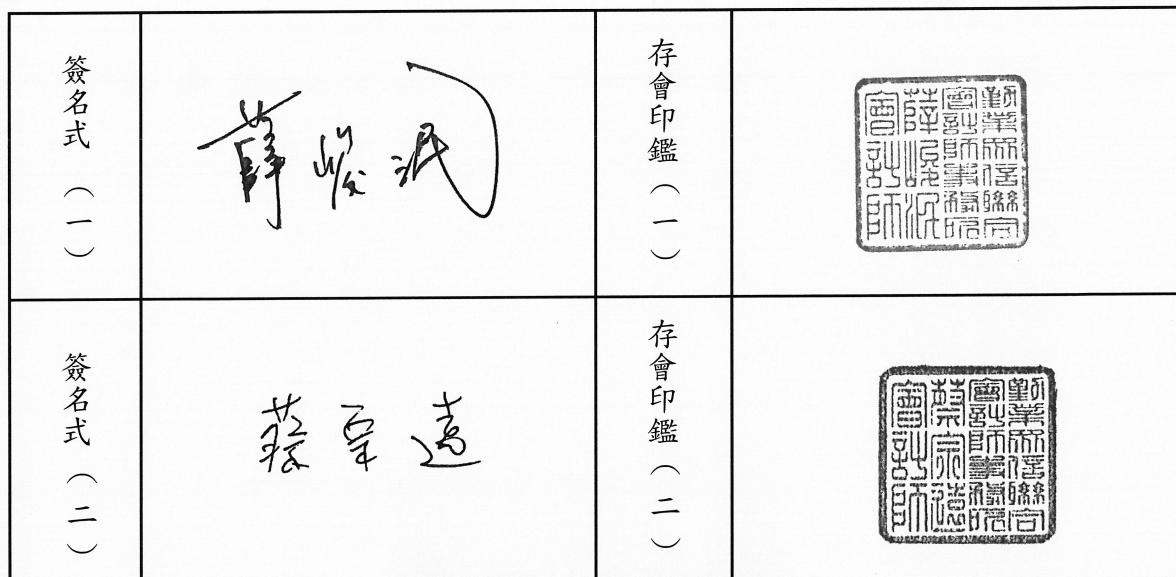 簽名式（一）
薛峻泯
存會印鑑（一）
勤業眾信聯合
會計師事務所
薛峻泯
會計師
簽名式（二）
蔡宗遠
存會印鑑（二）
勤業眾信聯合
會計師事務所
蔡宗遠
會計師